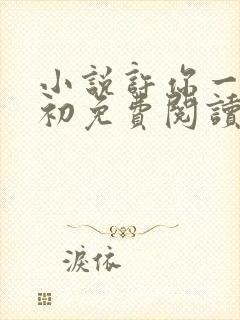 小說許你一
初免費閱讀
淚依